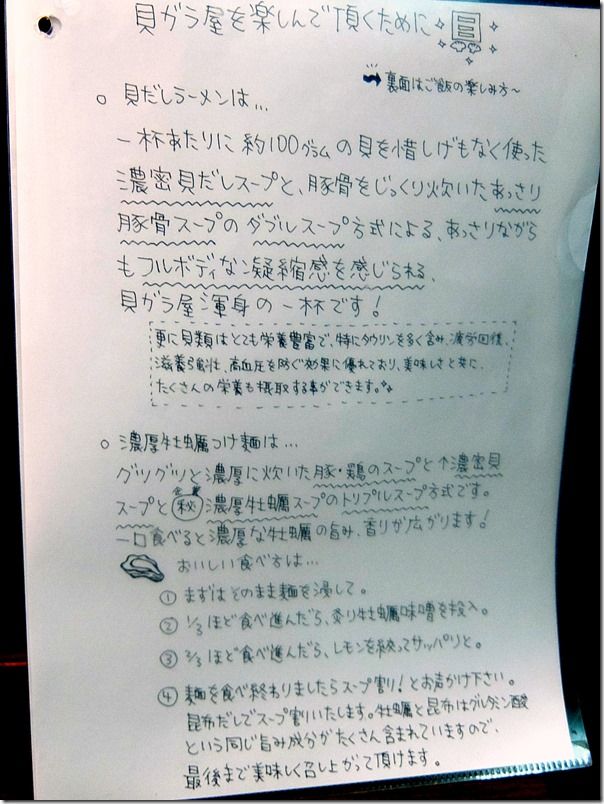 貝ガラ屋を楽しんで頂くために
裏面はご飯の楽しみ方〜
○ 貝だしラーメンは…
一杯あたりに約100グラムの貝を惜しげもなく使った
濃密貝だしスープと、豚骨をじっくり炊いたあっさり
豚骨スープのダブルスープ方式による、あっさりながら
もフルボディな凝縮感を感じられる、
貝ガラ屋渾身の一杯です！
更に貝類はとても栄養豊富で、特にタウリンを多く含み、疲労回復、
滋養強壮、高血圧を防ぐ効果に優れており、美味しさと共に、
たくさんの栄養も摂取する事ができます。
○ 濃厚牡蠣つけ麺は…
グツグツと濃厚に炊いた豚・鶏のスープと↑濃密貝
スープと企業㊙濃厚牡蠣スープのトリプルスープ方式です。
一口食べると濃厚な牡蠣の旨み、香りが広がります！
おいしい食べ方は…
① まずはそのまま麺を浸して。
② 1/3ほど食べ進んだら、炙り牡蠣味噌を投入。
③ 2/3ほど食べ進んだら、レモンを絞ってサッパリと。
④ 麺を食べ終わりましたらスープ割り！とお声がけ下さい。
昆布だしでスープ割りいたします。牡蠣と昆布はグルタミン酸
という同じ旨み成分がたくさん含まれていますので、
最後まで美味しく召し上がって頂けます。